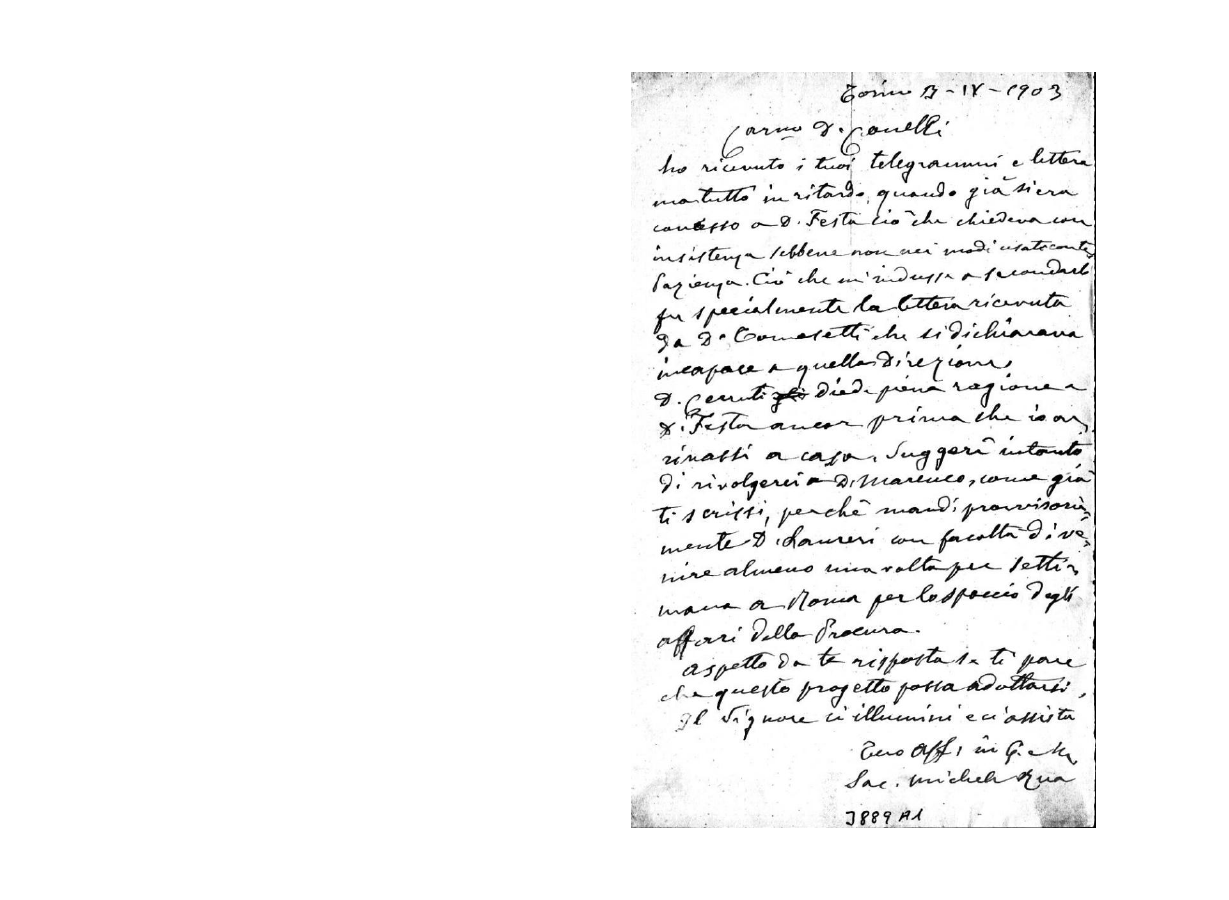 Torino 13 - IV - 1903
Carmo D. Conelli
ho ricevuto i tuoi telegrammi e lettera
ma tutto in ritardo, quando già si era
concesso a D. Festa ciò che chiedeva con
insistenza sebbene non nei modi usati con
Ciò che m'indusse a secondarlo
fu specialmente la lettera ricevuta
da D. che si dichiarava
incapace a quella Direzione.
D. Cerruti diede piena ragione a
D. Festa ancor prima che io ar,
rivassi a casa. Suggerì intanto
di rivolgerci a D. Marenco, come già
ti scrissi, perchè mandi provvisoria,
mente D. Laureri con facoltà di ve,
nire almeno una volta per setti,
mana a Roma per lo spaccio degli
affari della Procura.
Aspetto da te risposta se ti pare
che questo progetto possa adottarsi.
Il Signore ci illumini e ci assista
Tuo aff. in G. e M.
Sac. Michele Rua
3889 A1